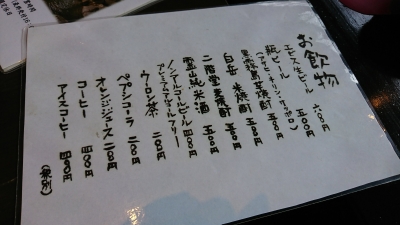 お飲物
エビス生ビール 六〇〇円
瓶ビール 五〇〇円
(アサヒ・キリン・サッポロ)
黒霧島芋焼酎 五〇〇円
白岳 米焼酎 五〇〇円
二階堂麦焼酎 五〇〇円
純米酒 五〇〇円
ノンアルコールビール 四〇〇円
ウーロン茶 二〇〇円
ペプシコーラ 二〇〇円
オレンジジュース 二〇〇円
コーヒー 四〇〇円
アイスコーヒー 四〇〇円
(税別)